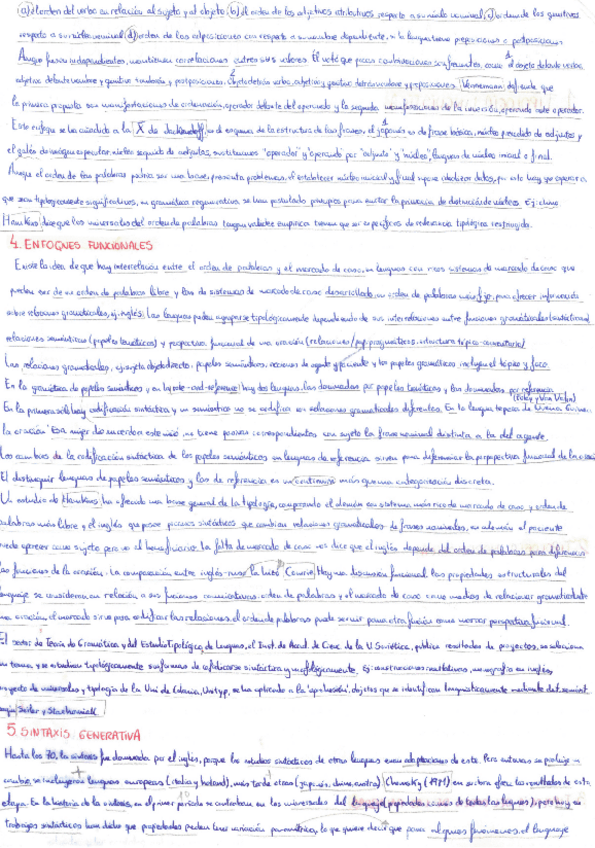 (a) el orden del verbo en relación al sujeto y al objeto, b) el orden de los adjetivos atributivos respecto a su núcleo nominal, c) orden de los genitivos
respecto a su núcleo nominal, d) orden de las adposiciones con respecto a su nombre dependiente, si la lengua tiene preposiciones o postposiciones
Aunque fuesen independientes, mantienen correlaciones entre sus valores.
Vennemann defiende que
la primera propuesta son manifestaciones de ordenación, operador delante del operando y la segunda, manifestaciones de la inversa, operando ante operador.
Este enfoque se ha añadido a la X de Jackendoff, un esquema de la estructura de las frases, el japonés es de frase básica, núcleo precedido de adjuntos y
el galés da imagen especular, núcleo seguido de adjuntos, sustituimos "operador" y "operando" por "adjunto" y "núcleo", lenguas de núcleo inicial o final.
Aunque el orden de las palabras podría ser una base, presenta problemas, el establecer núcleo inicial y final supone idealizar datos, por esto hay que esperar a
que sean tipológicamente significativos, en gramática regenerativa, se han postulado principios para evitar la presencia de distinción de núcleos. Ej: chino.
Hawkins dice que los universales del orden de palabras tengan validez empírica tienen que ser específicos de relevancia tipológica restringida.
4. ENFOQUES FUNCIONALES
Existe la idea de que hay interrelación entre el orden de palabras y el marcado de caso, en lenguas con ricos sistemas de marcado de caso que
pueden ser de un orden de palabras libre y las de sistemas de marcado de caso desarrollado, un orden de palabras más fijo, para ofrecer información
sobre relaciones gramaticales, ej: inglés. Las lenguas pueden agruparse tipológicamente dependiendo de sus interrelaciones entre funciones gramaticales (sintácticas)
relaciones semánticas (papeles temáticos) y perspectiva funcional de una oración (relaciones/pap. pragmáticos, estructura tópico-comentario)
Las relaciones gramaticales, ej: sujeto objeto directo. papeles semánticos, nociones de agente y paciente y los papeles gramaticales incluyen el tópico y foco.
En la gramática de papeles semánticos y en la role-and-reference hay dos lenguas, las dominadas por papeles temáticos y las dominadas por referencia
(Foley y Van Valin)
En la primera sólo hay codificación sintáctica y un semántico no se codifica en relaciones gramaticales diferentes. En la lengua tepera de Nueva Guinea
la oración
no tiene pasivas correspondientes con sujeto la frase nominal distinta a la del agente.
Los cambios de la codificación sintáctica de los papeles semánticos en lenguas de referencia sirven para determinar la perspectiva funcional de la oración
El distinguir lenguas de papeles semánticos y las de referencia es un continuo más que una categorización discreta.
Un estudio de Hawkins, ha ofrecido una base general de la tipología, comparando el alemán con sistema más rico de marcado de caso y orden de
palabras más libre y el inglés que posee procesos sintácticos que cambian relaciones gramaticales de frases nominales, en alemán el paciente
puede aparecer como sujeto pero no el beneficiario. La falta de marcado de caso nos dice que el inglés depende del orden de palabras para diferenciar
las funciones de la oración. La comparación entre inglés-ruso la hizo Comrie. Hay una discusión funcional. Las propiedades estructurales del
lenguaje se consideran en relación a sus funciones comunicativas. orden de palabras y el marcado de caso como medios de relacionar gramaticalmente
una oración, el marcado sirve para codificar las relaciones, el orden de palabras puede servir para otra función como marcar perspectiva funcional.
El sector de Teoría de Gramática y del Estudio Tipológico de Lenguas, el Inst. de Acad. de Cienc. de la U. Soviética, publica resultados de proyectos, se selecciona
un tema, y se estudian tipológicamente sus formas de codificarse sintáctica y morfológicamente. Ej: construcciones resultativas, monografía en inglés,
proyecto de universales y tipología de la Uni de Colonia, Unityp, se ha aplicado a la 'aprehensión', objetos que se identifican lingüísticamente mediante
Seiler y Stachowiak
5. SINTAXIS GENERATIVA
Hasta los 70, la sintaxis fue dominada por el inglés, porque los estudios sintácticos de otras lenguas eran adaptaciones de este. Pero entonces se produjo un
cambio, se incluyeron lenguas europeas (italia y holand), más tarde otras (japonés, chino,
) Chomsky (1981) en su obra ofrece los resultados de esta
etapa. En la historia de la sintaxis, en el primer período se centraban en los universales del lenguaje (propiedades comunes de todas las lenguas), pero hoy en
trabajos sintácticos han dicho que propiedades pueden tener variación paramétrica, lo que quiere decir que para algunos fenómenos, el lenguaje